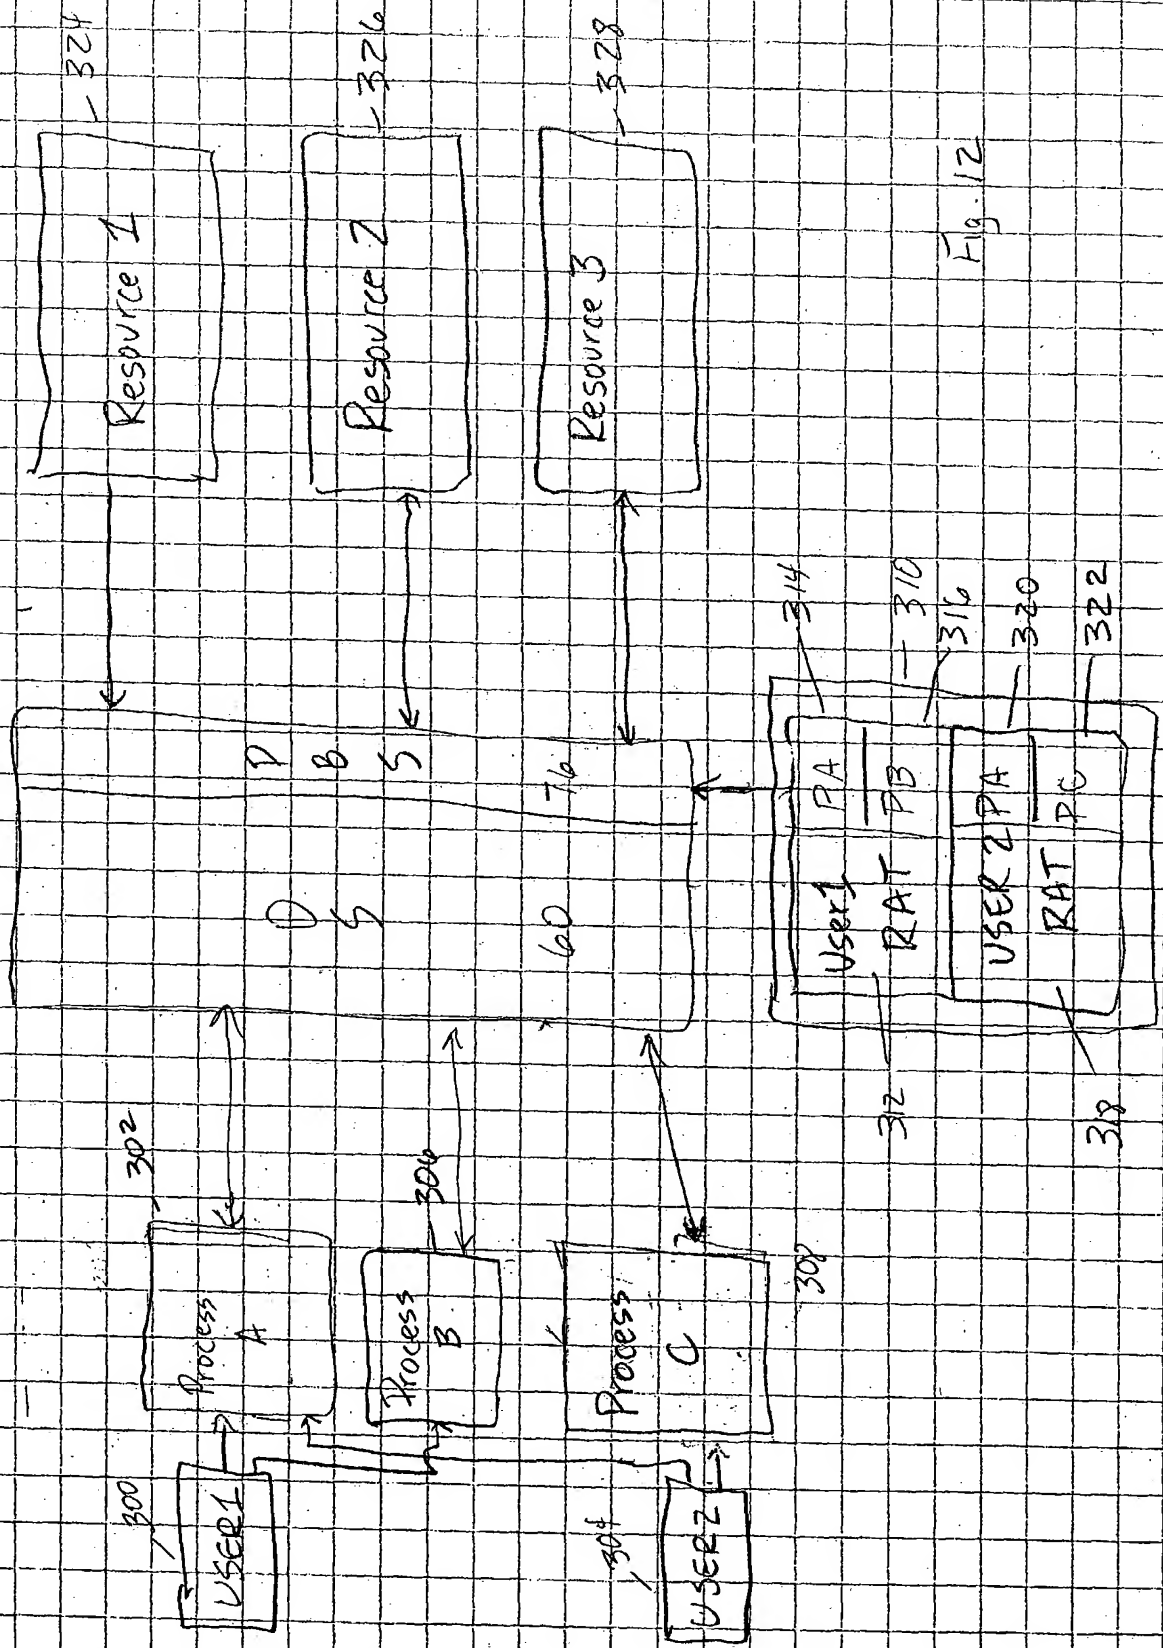 300
USER1
304
USER2
302
Process
A
306
Process
B
308
Process
C
D
S
60
D
B
S
76
Resource 1
324
Resource 2
326
Resource 3
328
312
User1
RAT
PA
PB
314
310
316
318
USER 2
RAT
PA
PC
320
322
Fig. 12